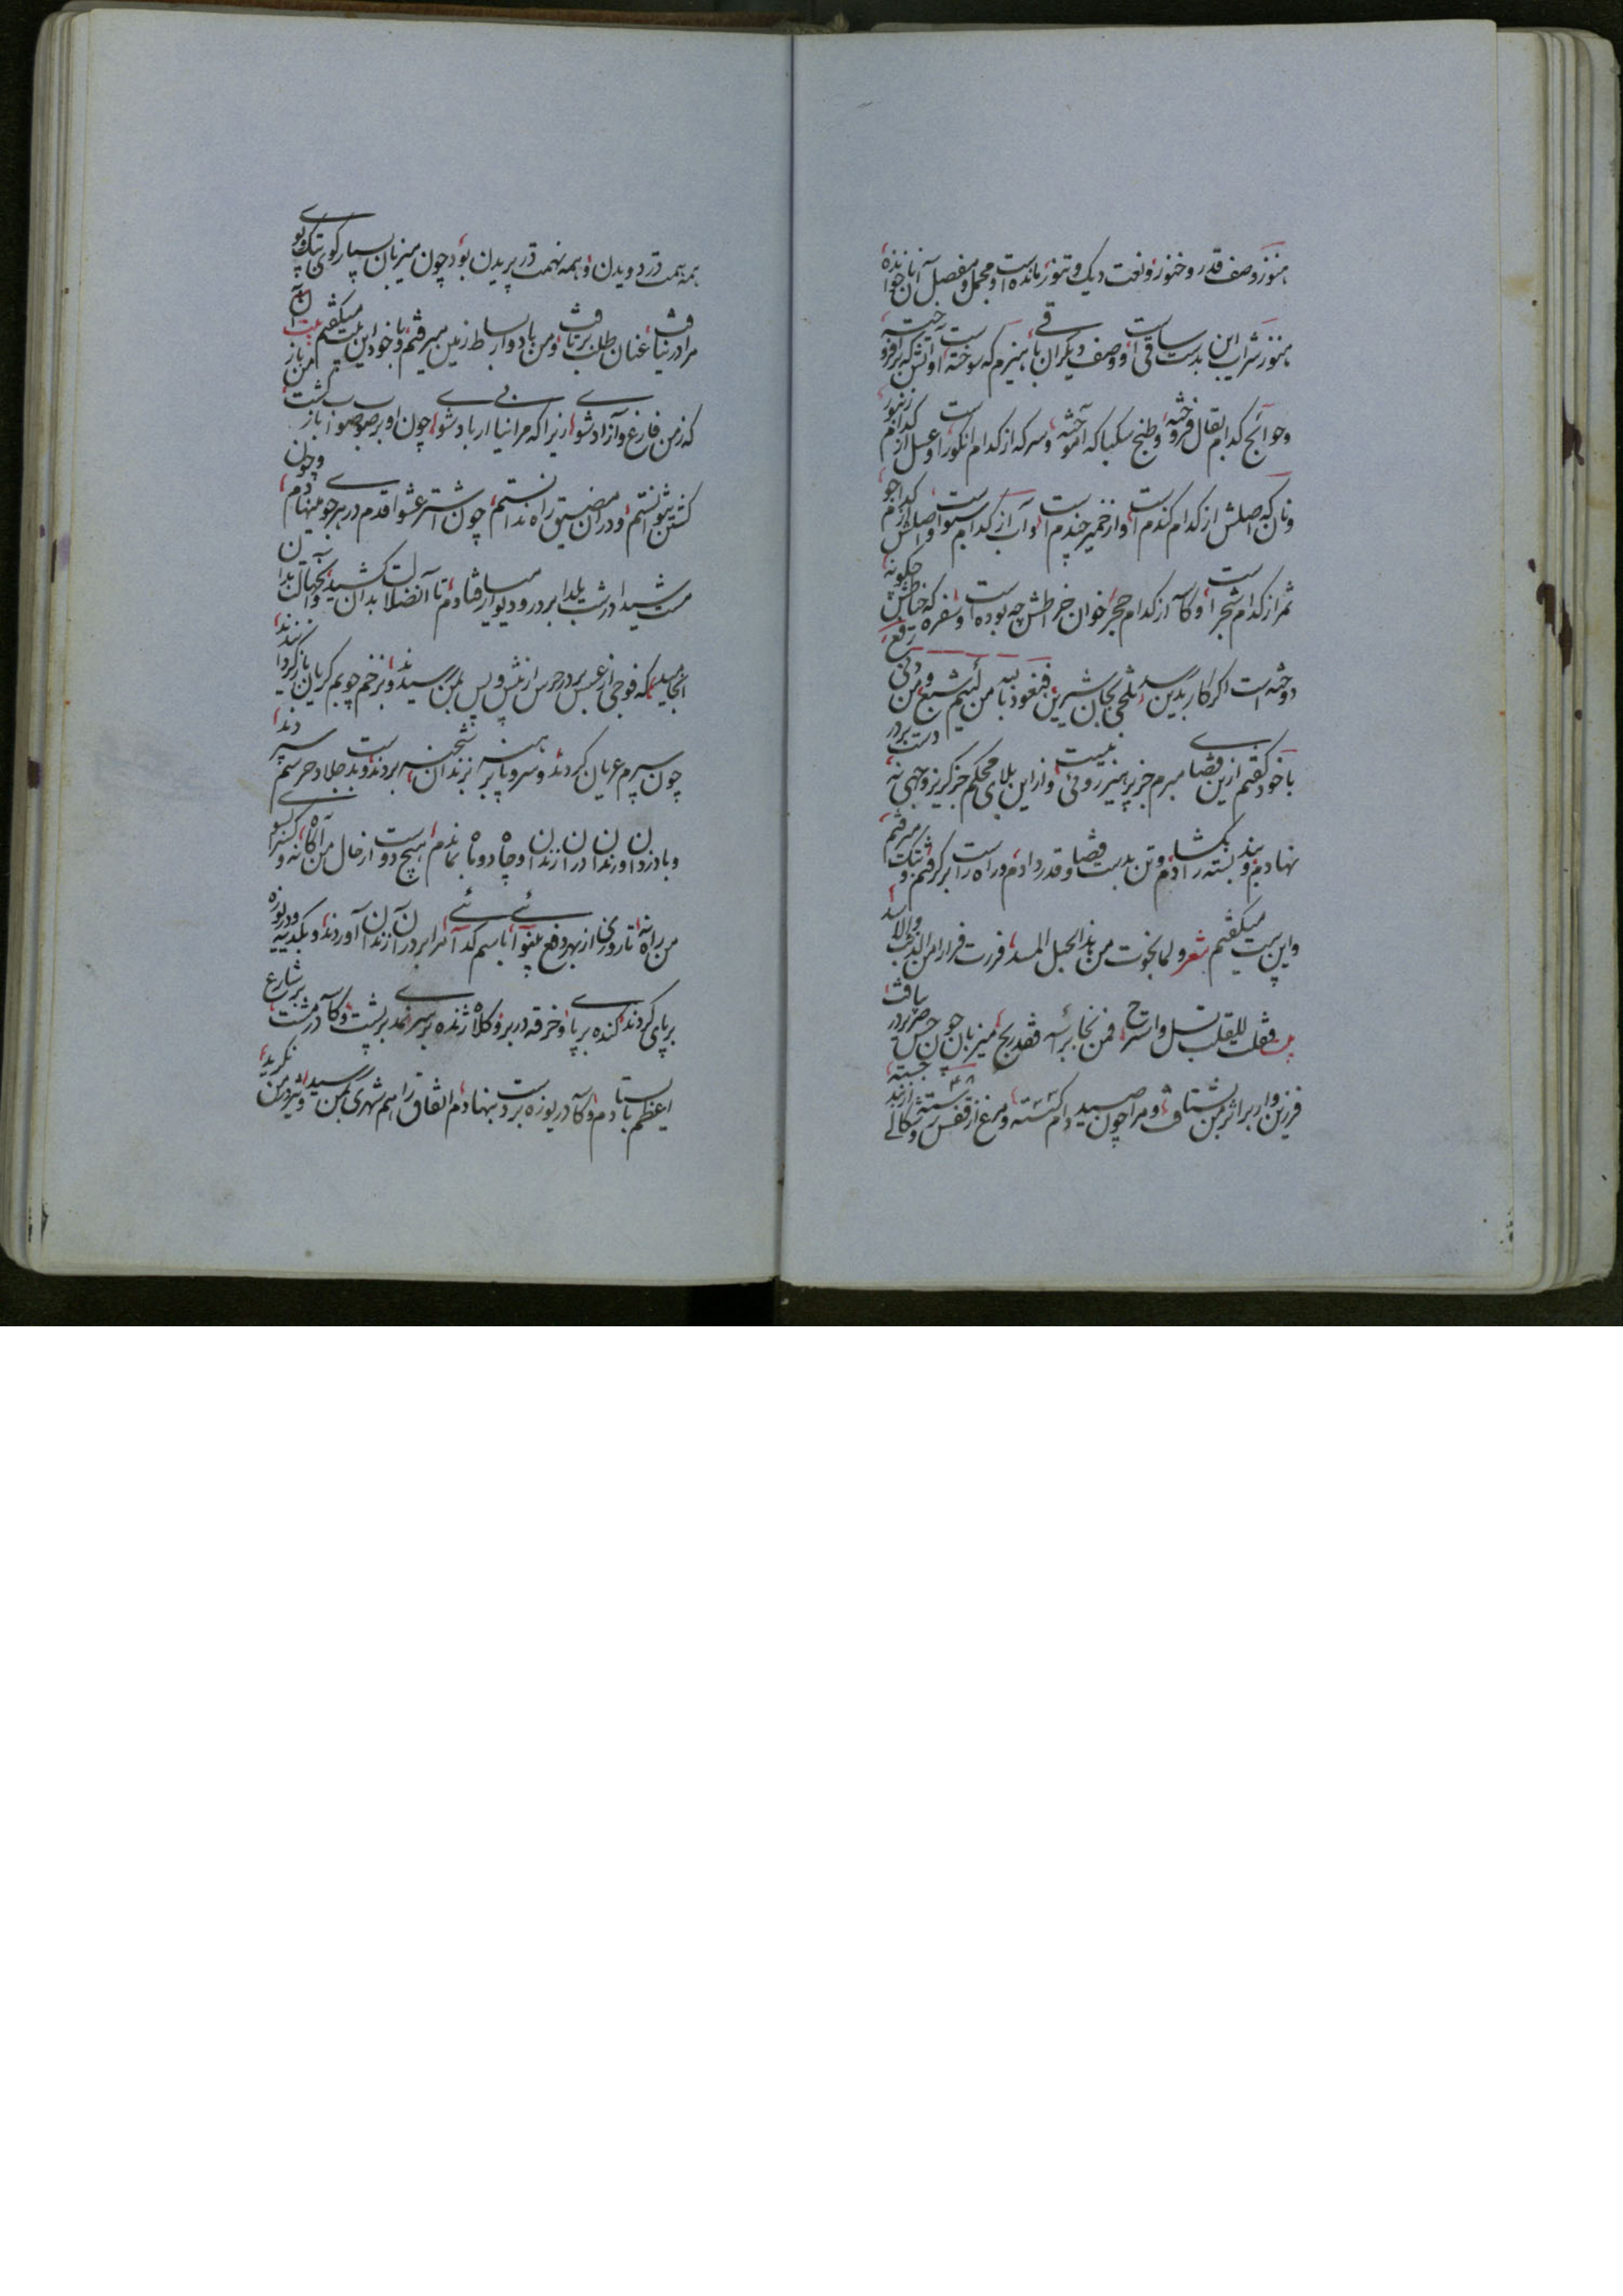 هنوز وصف قدر و خنور و نعت دیک و تنور مانده است و مجمل و مفصل آن ناخوانده
هنوز شراب این بدست ساقی است و وصف دیکران باقی هیزم که سوخته است و آتش که افروخته
و حوائج کدام بقال فروخته و طبخ سکبا که آموخته و سرکه از کدام انکور است و عسل از کدام زنبور
و نان که اصلش از کدام کندم است و از خمیر چندم است و آب از کدام سبو است و اصلش از کدام جو
ثمر از کدام شجر است و کاسه از کدام حجر خوان خراطش چه بوده است و سفره که خیاطش چکونه
دوخته است اکر کار بدین رسد و تلخی بجان شیرین فنعوذ بالله من لئیم شبع و من دنی رقع
با خود کفتم ازین قضای مبرم جز پرهیز روئی نیست و از این بلای محکم جز کریز وجهی نه دست بر در
نهادم و بند بسته را بکشادم و تن بدست قضا و قدر دادم و راه راست را برکرفتم و تک میرفتم
و این بیت میکفتم شعر و لما نجوت من هذا الحبل المسد فررت فرارا من الذئب و الاسد
فقلت للقلب تسل و استرح فمن نجا براسه فقد ربح میزبان چون حس صریر در یافت
فرزین وار بر اثر من بشتافت و مرا چون صید دام کسسته و مرغ از قفس رسته و شکالی از بند جسته
همه همت در دویدن و همه نهمت در پریدن بود چون میزبان بسیار کوی تک و پوی
مرا در نیافت عنان طلب برتافت و من باد وار بساط زمین میرفتم و با خود این بیت میکفتم بیت آن
که ز من فارغ و آزاد شوی زیرا که مرا نیابی ار باد شوی چون او بر صوب صواب باز کشت من باز
کشتن نتوانستم و در آن مضیق راه ندانستم چون شتر عشوا قدم در هر جوی مینهادم و چون
مست شیدا در شب یلدا بر در و دیوار میفتادم تا آن ضلالت بدان کشید و آن جهالت بدان
انجامید که فوجی از عسس بر در حرس از پیش و پس بمن رسیدند و بزخم چوبم کریبان باز کردانیدند
چون سیرم عریان کردند و سر و پا برهنه بزندان شحنه بردند و بدست جلاد حرسم سپردند
و با دزدان و رندان در آن زندان و چاه دو ماه بماندم هیچ دوست از حال من آکاه نه و کسی را سوی
من راه نه تا روزی از بهر دفع بینوائی باسم کدائی مرا بر در آن زندان آوردند و بکدیه و دریوزه
برپای کردند کنده بر پای و خرقه در بر و کلاه ژنده بر سر نمد بر پشت و کاسه در مشت بر شارع
اعظم بایستادم و کاسه دریوزه بر دست بنهادم اتفاق را هم شهری بمن رسید و تیز در من نکرید